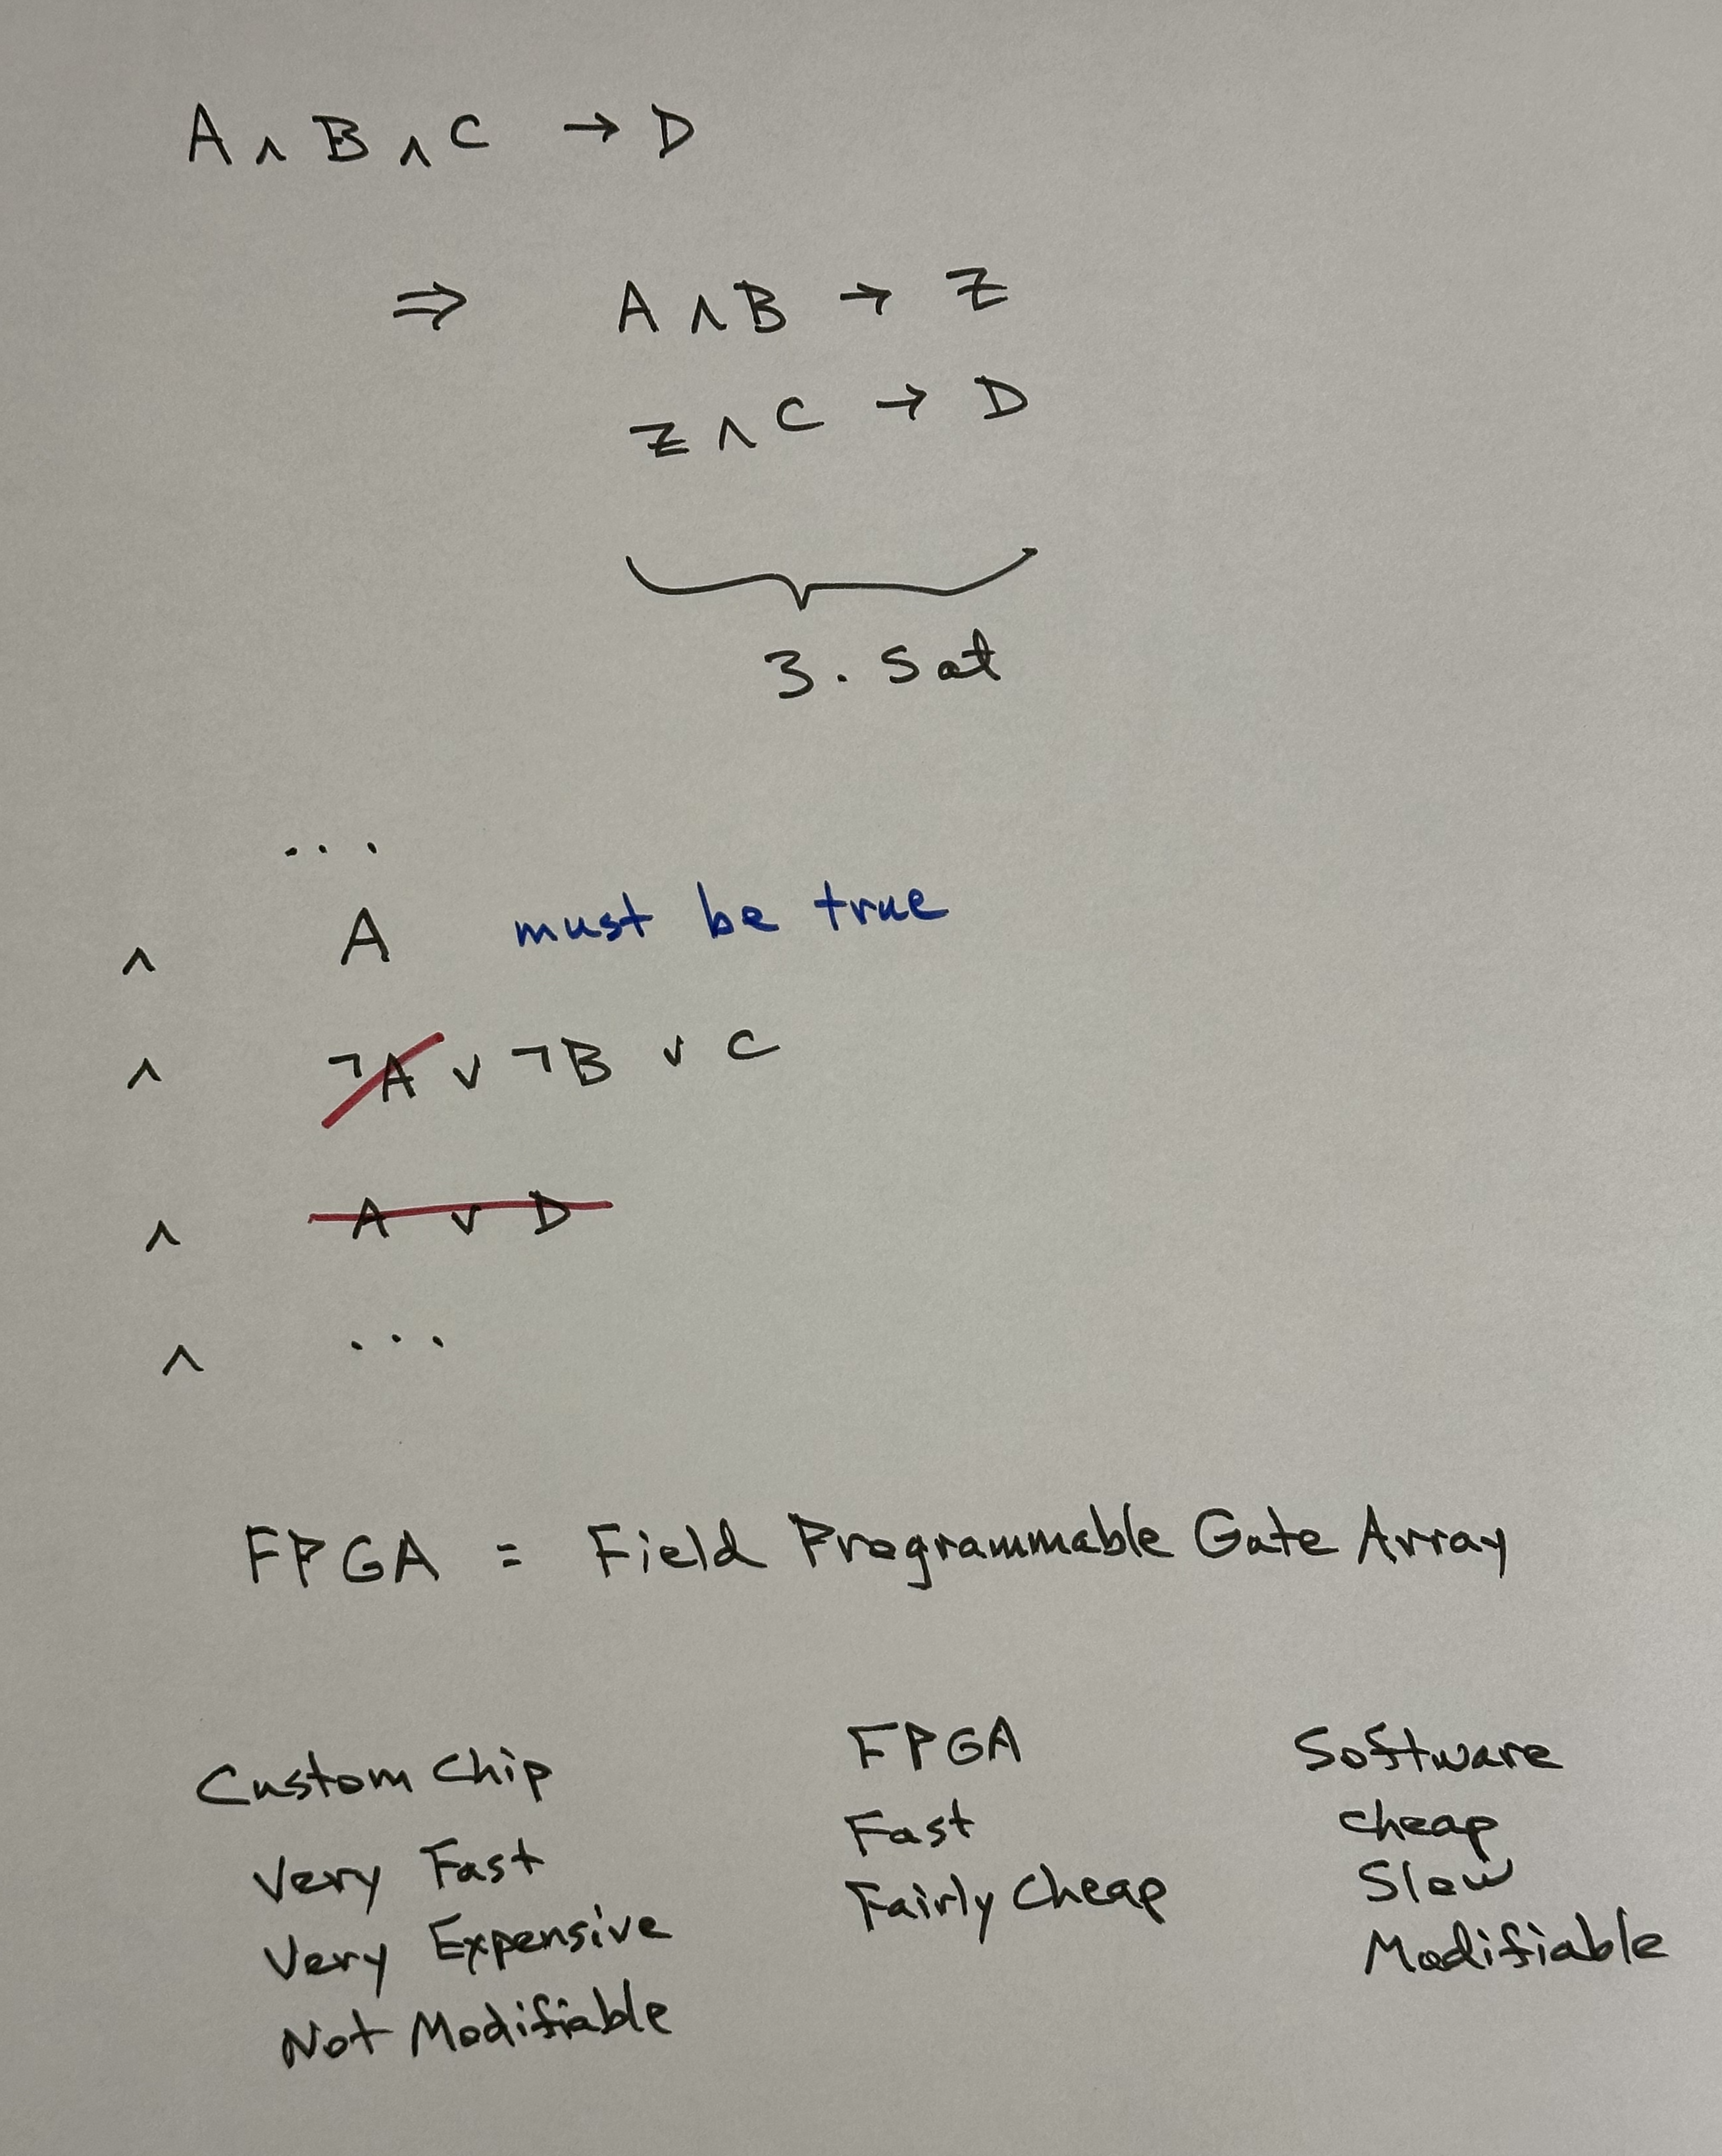 A ∧ B ∧ C → D
⇒ A ∧ B → Z
Z ∧ C → D
3. Sat
...
∧ A must be true
∧ ¬A ∨ ¬B ∨ C
∧ A ∨ D
∧ ...
FPGA = Field Programmable Gate Array
Custom Chip
Very Fast
Very Expensive
Not Modifiable
FPGA
Fast
Fairly Cheap
Software
cheap
Slow
Modifiable